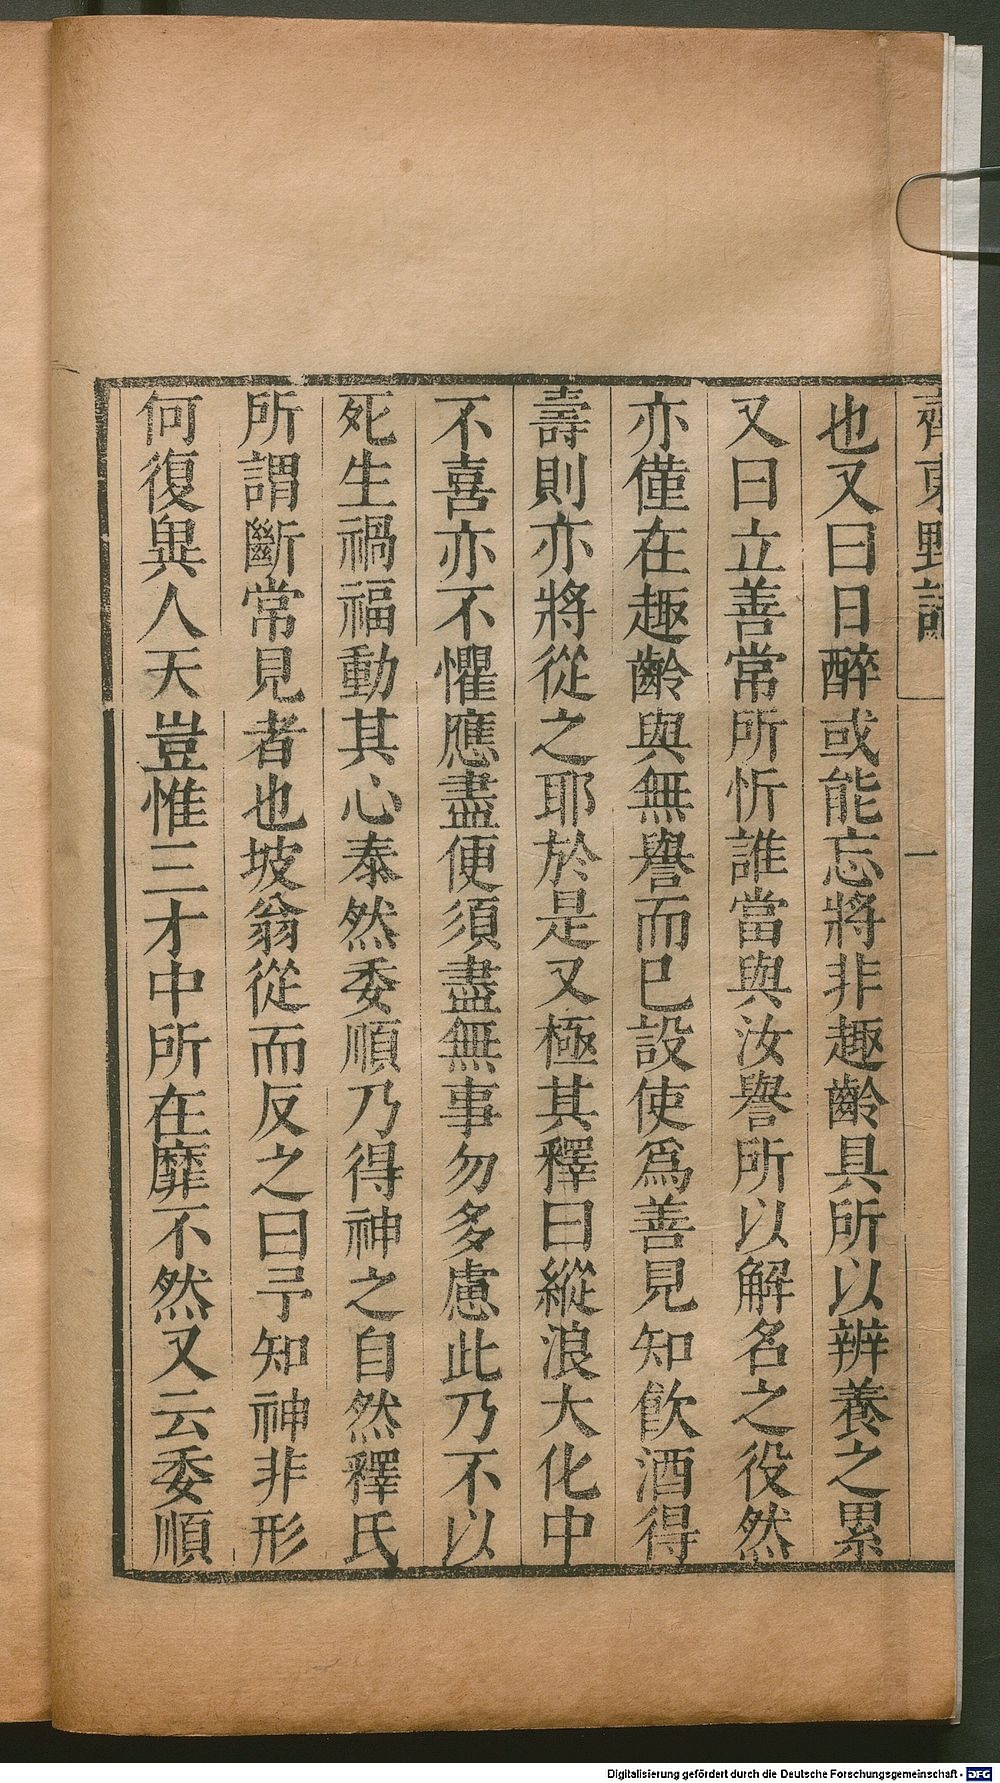 齊東野語
一
也又曰日醉或能忘將非趣齡具所以辨養之累
又曰立善常所忻誰當與汝譽所以解名之役然
亦僅在趣齡與無譽而已設使爲善見知飮酒得
壽則亦將從之耶於是又極其釋曰縱浪大化中
不喜亦不懼應盡便須盡無事勿多慮此乃不以
死生禍福動其心泰然委順乃得神之自然釋氏
所謂斷常見者也坡翁從而反之曰予知神非形
何復異人天豈惟三才中所在靡不然又云委順
Digitalisierung gefördert durch die Deutsche Forschungsgemeinschaft - DFG